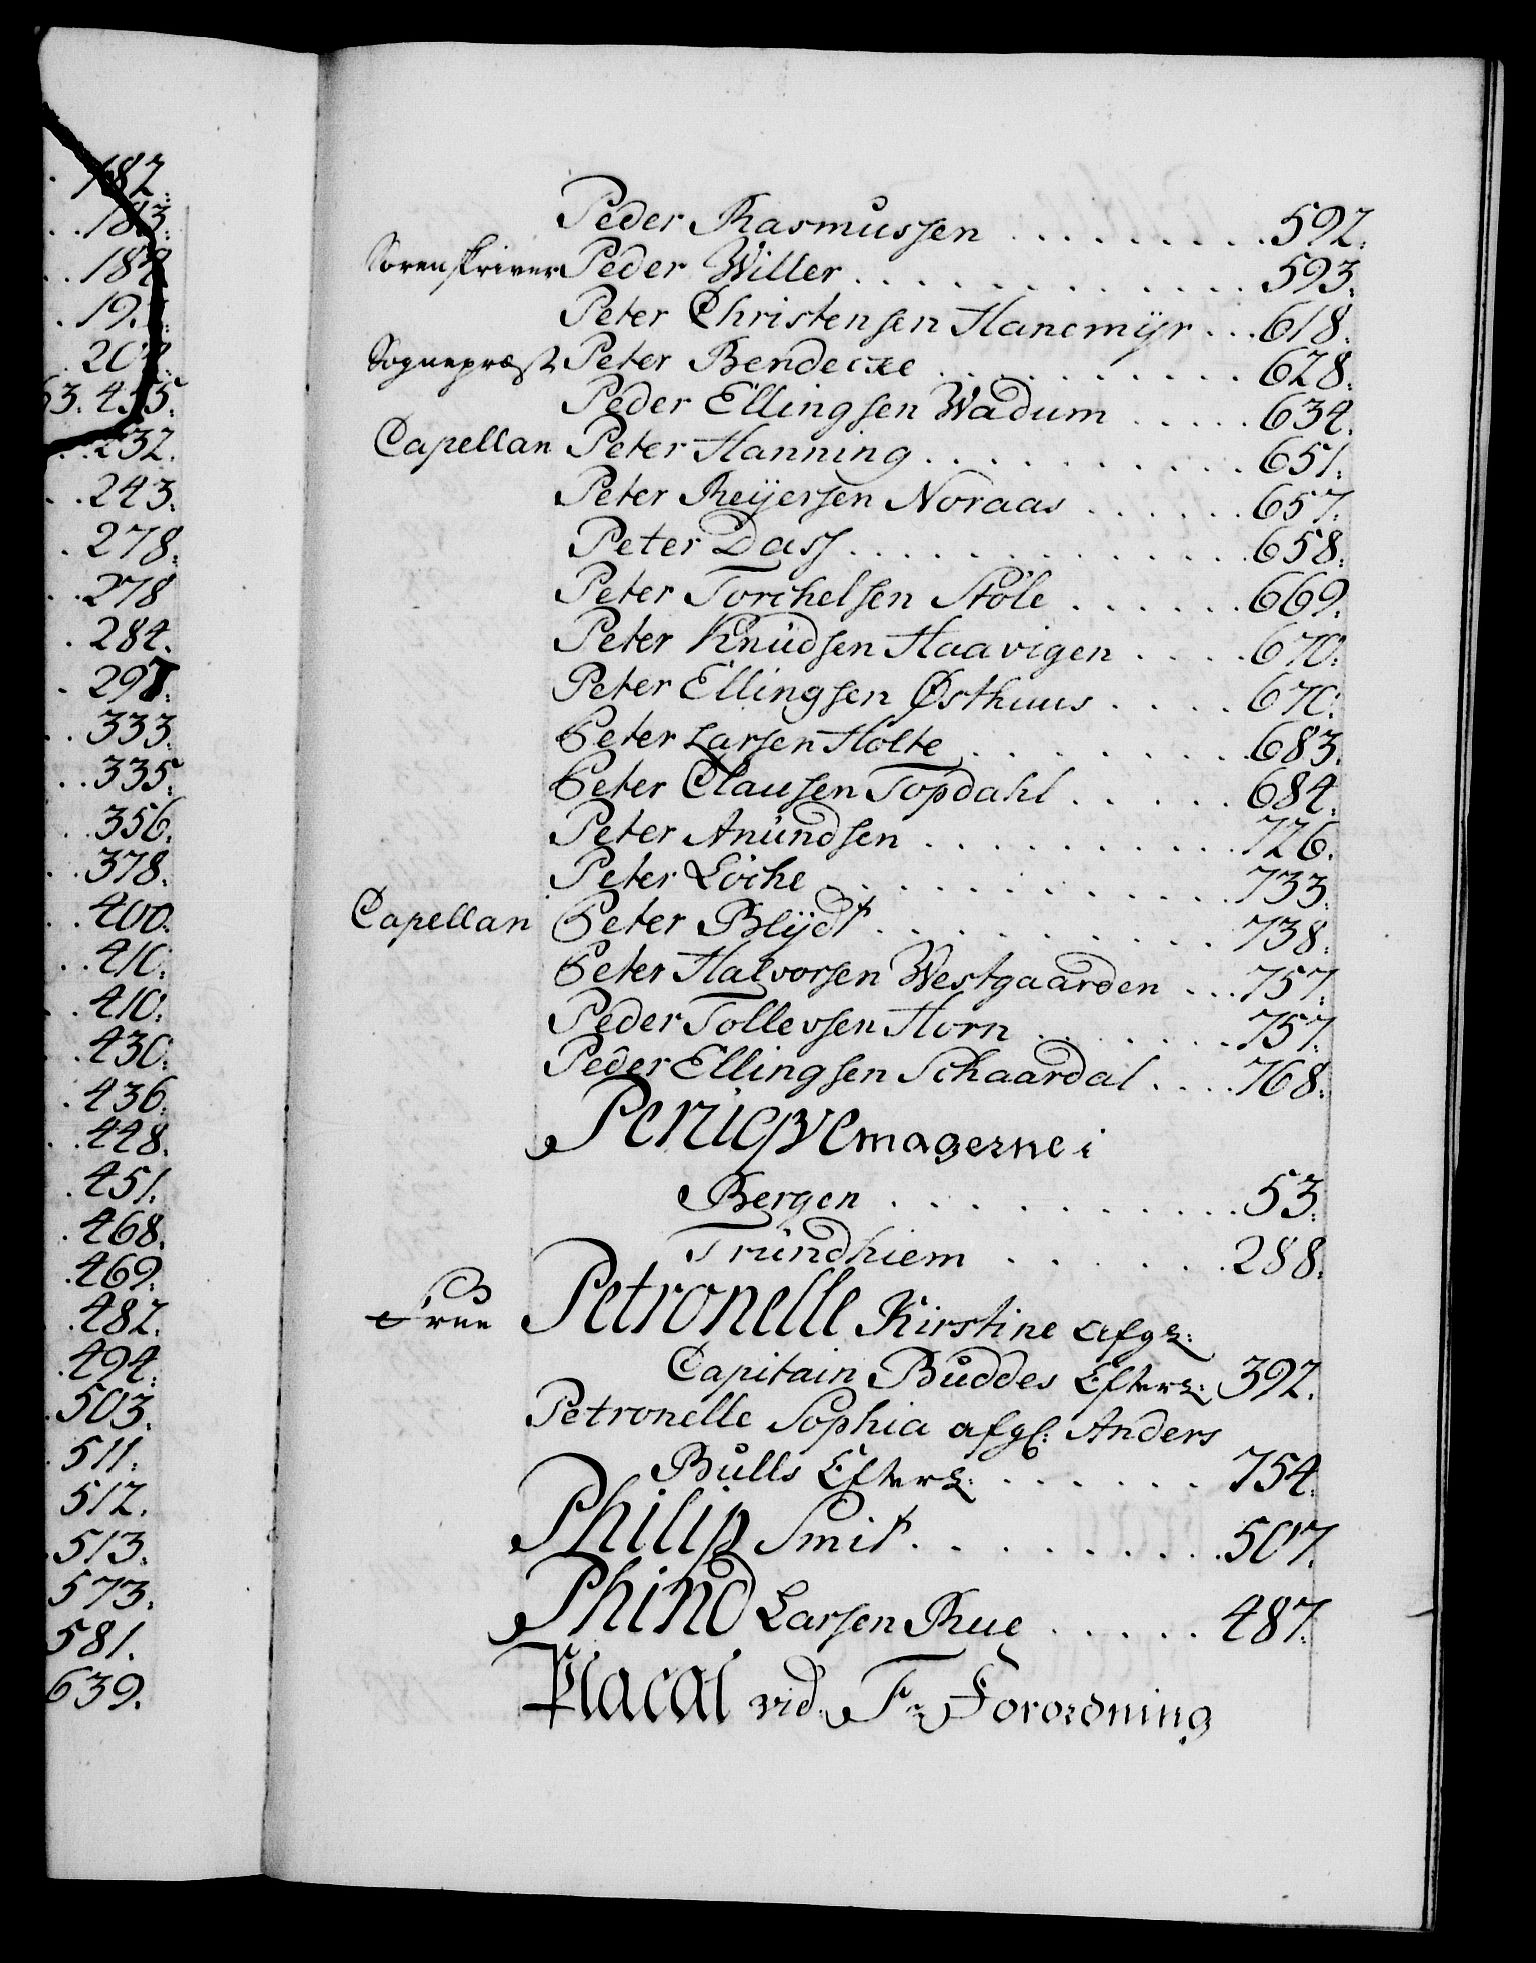 182.
183.
184
19
20
63. 455.
232.
243.
278.
278
284.
297.
333.
335.
356.
378.
400.
410.
410.
430.
436.
448.
451.
468.
469.
482.
494.
503.
511.
512.
513.
573.
581.
639.
Peder Rasmussen . . . . . . . . . 592.
Sorenskriver Peder Willer . . . . . . . . . . . . 593.
Peter Christensen Hanemÿr . . . 618.
Sognepræst Peter Bendecke . . . . . . . . . . 628.
Peder Ellingsen Wadum . . . . . 634.
Capellan Peter Hanning . . . . . . . . . . . 651.
Peter Reÿersen Noraas . . . . . . 657.
Peter Dass . . . . . . . . . . . . . . 658.
Peter Torchelsen Støle . . . . . . 669.
Peter Knudsen Haavigen . . . . 670.
Peter Ellingsen Østhuus . . . . 670.
Peter Larsen Holte . . . . . . . . . 683.
Peter Clausen Topdahl . . . . . 684.
Peter Anundsen . . . . . . . . . . . 726.
Peter Löche . . . . . . . . . . . . . 733.
Capellan Peter Blÿdt . . . . . . . . . . . 738.
Peter Halvorsen Westgaarden . . . 757.
Peder Tollevsen Horn . . . . . . . 757.
Peder Ellingsen Schaardal . . . . 768.
Peruqvemagerne i
Bergen . . . . . . . . . . . . 53.
Trundhiem . . . . . . 288.
Frue Petronelle Kirstine afgl:
Capitain Buddes Efterl: 392.
Petronelle Sophia afgl: Anders
Bulls Efterl: . . . . . . . 754.
Philip Smit . . . . . . . . . . 507.
Phind Larsen Rue . . . . . 487.
Placat vid. F. Forordning